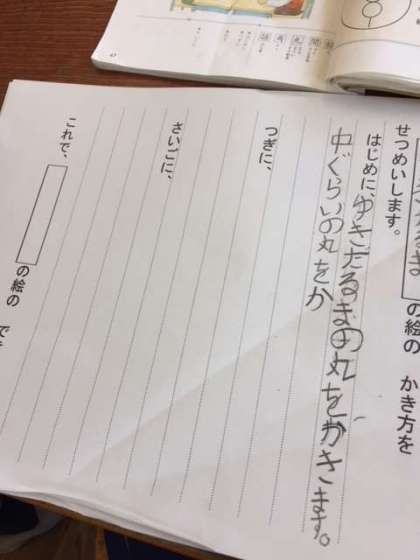 だるま の絵の かき方を
せつめいします。
はじめに、ゆきだるまの丸をかきます。
中ぐらいの丸をか
つぎに、
さいごに、
これで、 の絵の でき